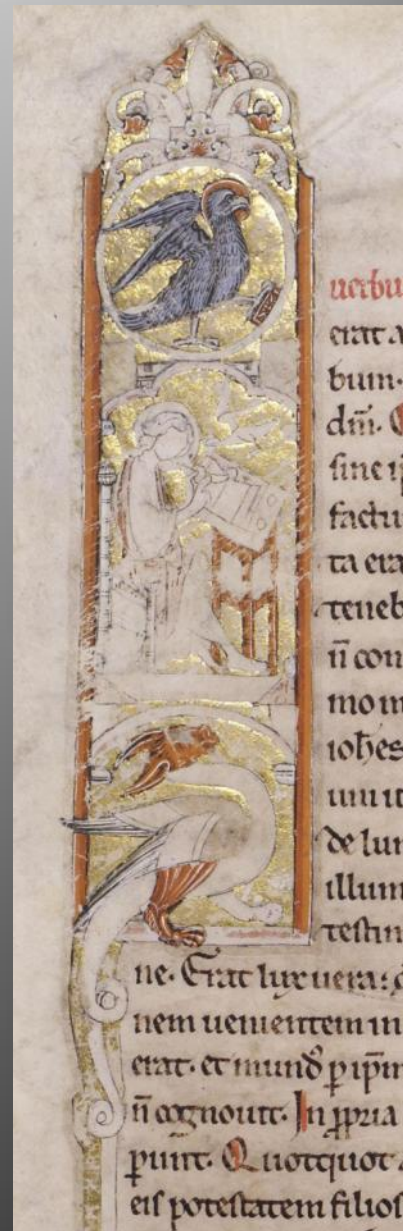 uerbu
erat a
bum.
dm̄. E
sine ip
factu
ta era
teneb
n̄ com
mo m
ioh̄es
uu it
de lum
illum
testim
ne. Erat lux uera: q
nem uenientem in
erat. et mund᷒ p ip̄m
n̄ cognouit. In ꝓpria
p̄unt. Quotquot a
eis potestatem filios